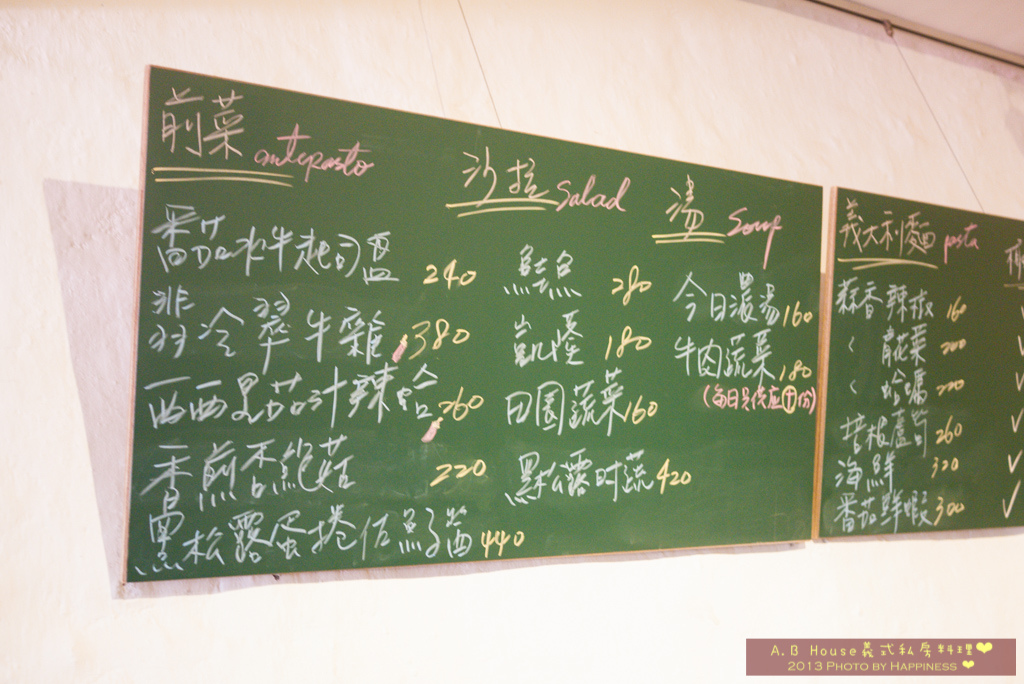 前菜 antepasto
番茄水牛起司盅 240
翡冷翠牛雜 380
西西里茄汁辣蛤 260
香煎杏鮑菇 220
黑松露蛋捲佐魚子醬 440
沙拉 Salad
鮭魚 280
凱薩 180
田園蔬菜 160
黑松露時蔬 420
湯 Soup
今日濃湯 160
牛肉蔬菜 180
(每日只供應十份)
義大利麵 pasta
蒜香辣椒 160
〈 青花菜 200
〈 蛤蠣 200
培根蘆筍 260
海鮮 320
番茄鮮蝦 300
A.B House義式私房料理❤
2013 Photo by Happiness ❤